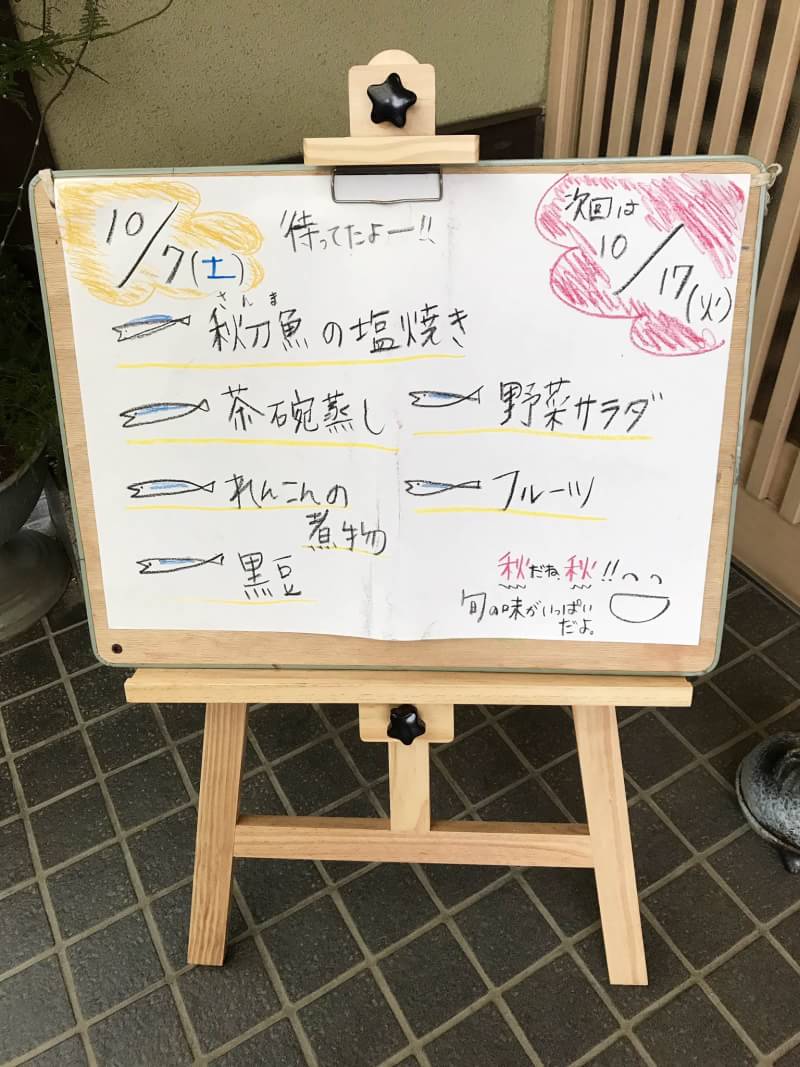 10/7(土)
待ってたよー!!
次回は
10/17(火)
さんま
秋刀魚の塩焼き
茶碗蒸し
れんこんの
煮物
黒豆
野菜サラダ
フルーツ
秋だね秋!!
旬の味がいっぱい
だよ。